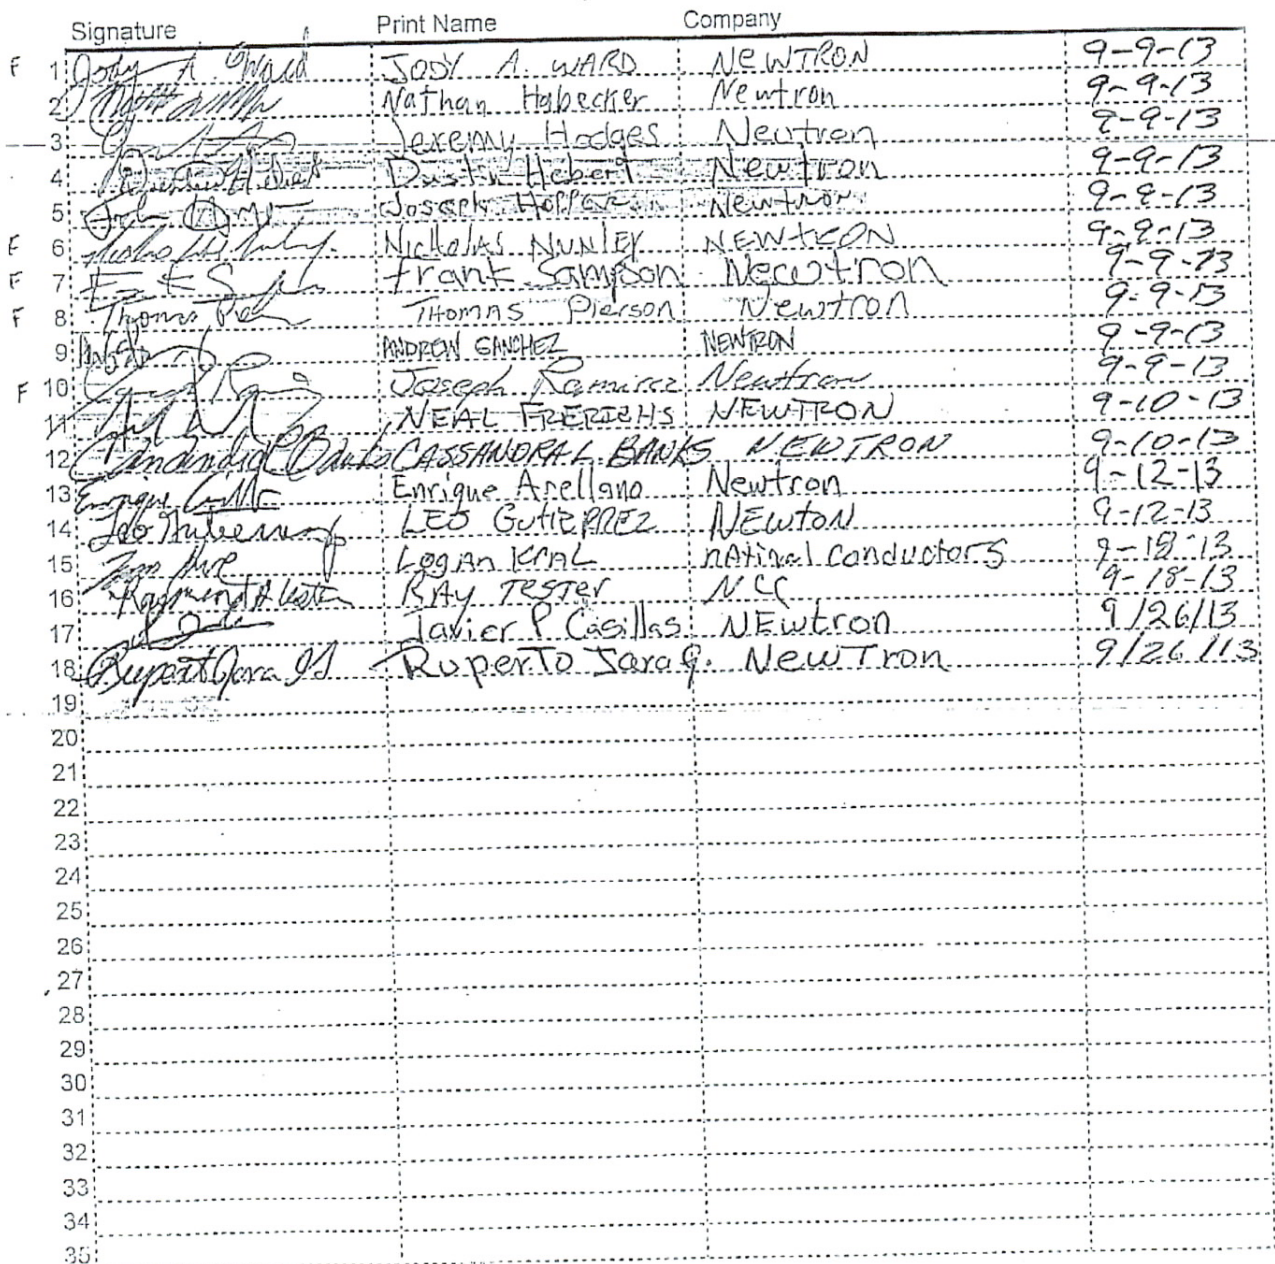 Signature Print Name Company
F 1 Jody A. Ward JODY A. WARD NEWTRON 9-9-13
2 Nathan Habecker Newtron 9-9-13
3 Jeremy Hodges Newtron 9-9-13
4 Dustin Hebert Dustin Hebert Newtron 9-9-13
5 Joseph Newtron 9-9-13
F 6 Nicholas Nunley NEWtRON 9-9-13
F 7 frank Sampson Newtron 9-9-13
F 8 Thomas THOMAS Pierson Newtron 9-9-13
9 ANDREW SANCHEZ NEWTRON 9-9-13
F 10 Joseph Ramirez Newtron 9-9-13
11 NEAL FRERICHS NEWTRON 9-10-13
12 Banks CASSANDRA L BANKS NEWTRON 9-10-13
13 Enrique Enrique Arellano Newtron 9-12-13
14 Leo LEO GutiERREZ NEwtoN 9-12-13
15 LogAn KrAL nAtinal conductors 9-18-13
16 Raymond RAy TESTer NCC 9-18-13
17 Javier P Casillas NEwtron 9/26/13
18 Rupert Jara RuperTo Jara g. NewTron 9/26/13
19
20
21
22
23
24
25
26
27
28
29
30
31
32
33
34
35